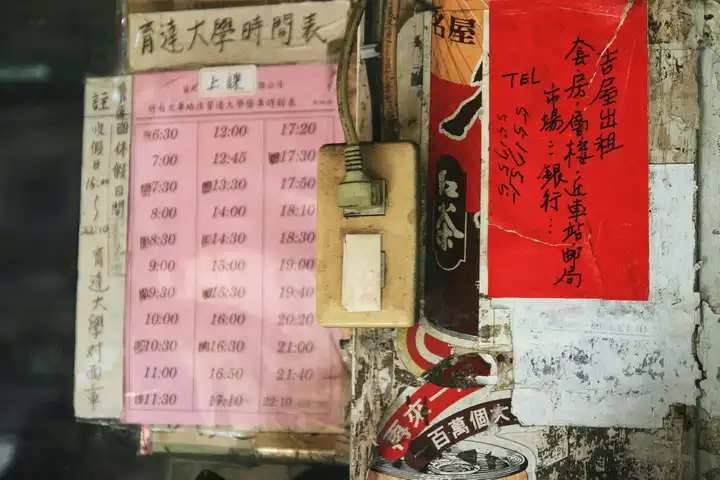 育達大學時間表
上課
竹南火車站往育達大學停車時刻表
6:30 12:00 17:20
7:00 12:45 17:30
7:30 13:30 17:50
8:00 14:00 18:10
8:30 14:30 18:30
9:00 15:00 19:00
9:30 15:30 19:40
10:00 16:00 20:20
10:30 16:30 21:00
11:00 16:50 21:40
11:30 17:10 22:10
國休假日間
註 收假日 16:00～22:10 育達大學對面上車
名屋
紅茶
再來一
百萬個大
吉屋出租
套房·店樓·近車站郵局
市場:銀行…
TEL
551751
551756